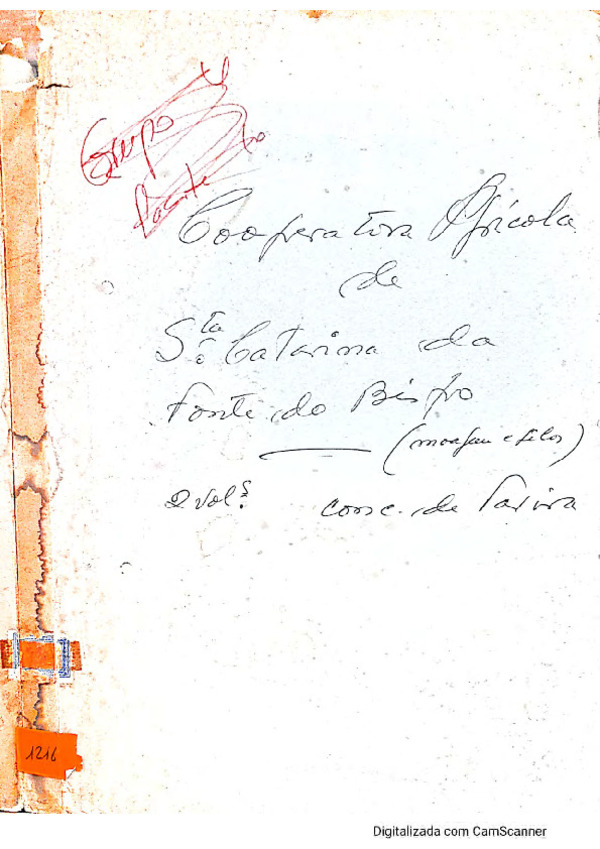 Grupo
Cooperativa Agrícola
de
S.ta Catarina da
Fonte do Bispo
2 vol.s
conc. de Tavira
1216
Digitalizada com CamScanner